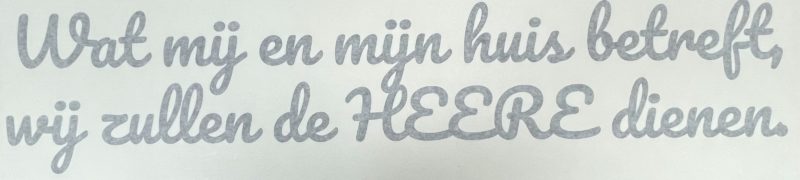 Wat mij en mijn huis betreft,
wij zullen de HEERE dienen.